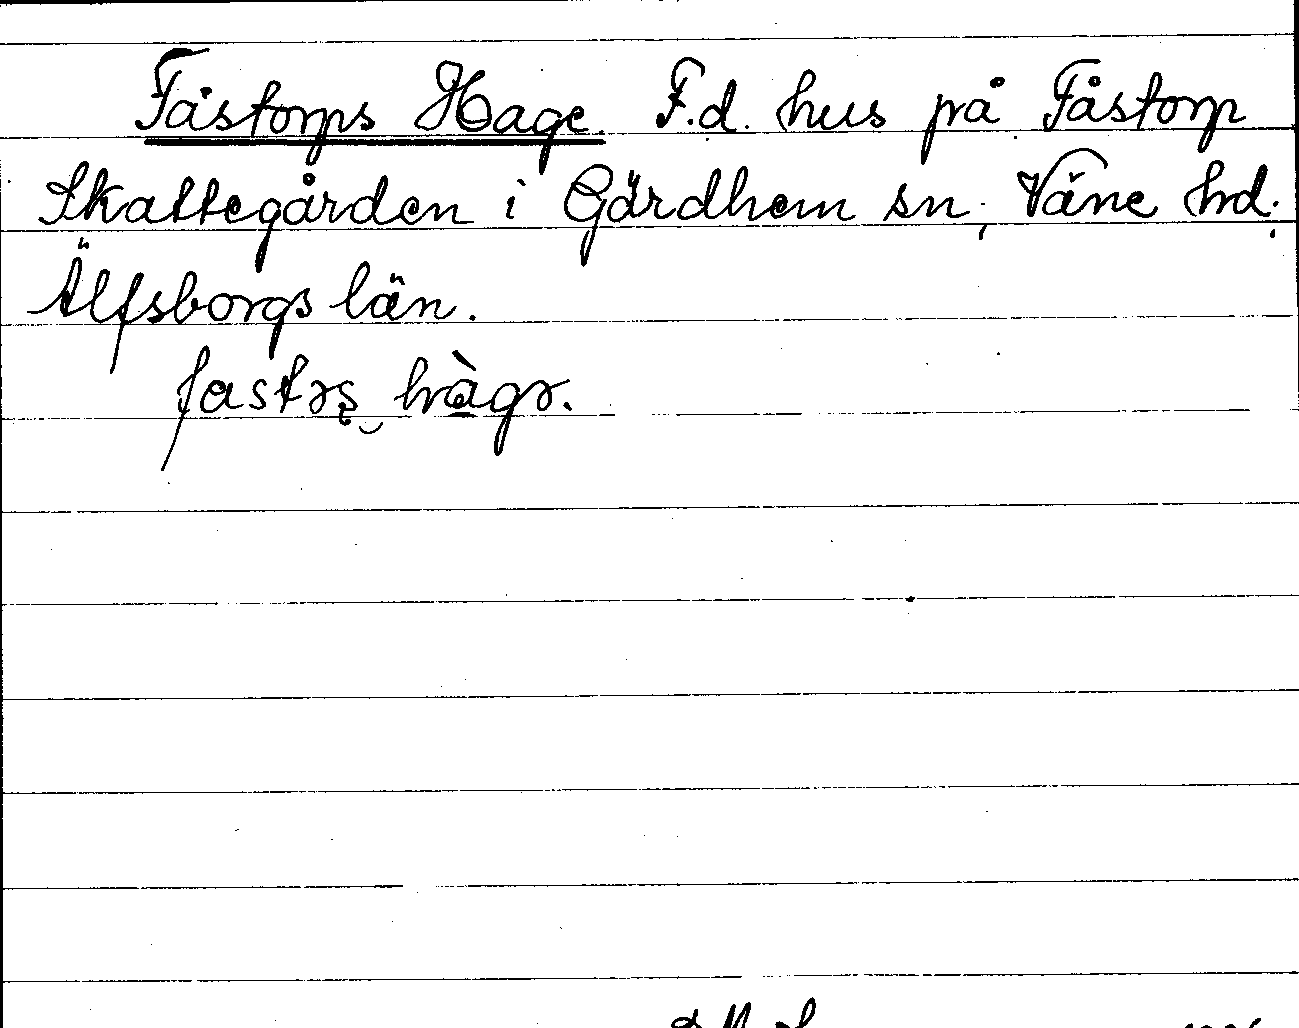 Fåstorps Hage. F.d. hus på Fåstorp
Skattegården i Gärdhem sn, Väne hd.,
Älfsborgs län.